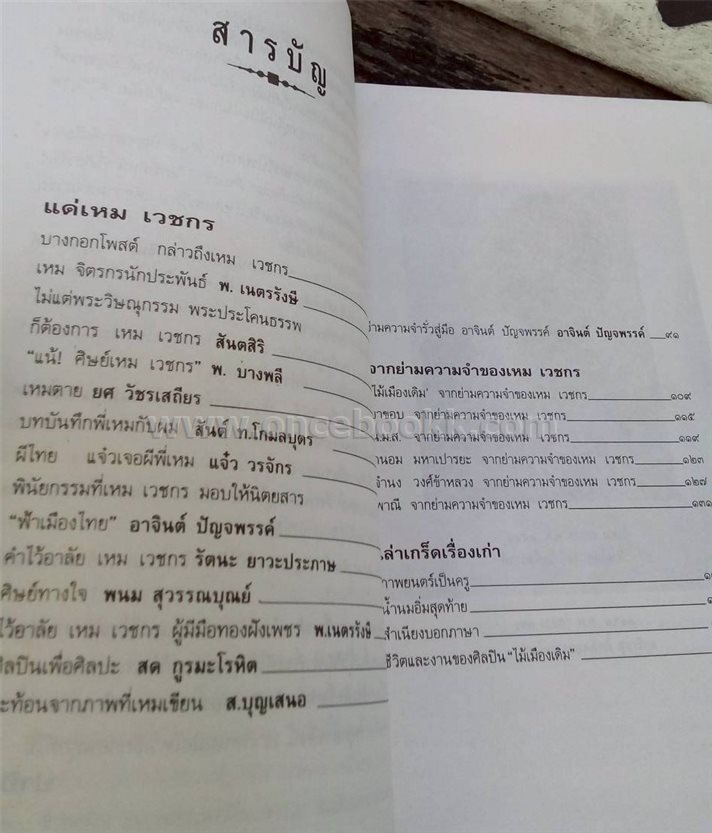 สารบัญ
แด่เหม เวชกร
บางกอกโพสต์ กล่าวถึงเหม เวชกร
เหม จิตรกรนักประพันธ์ พ. เนตรรังษี
ไม่แต่พระวิษณุกรรม พระประโคนธรรพ
ก็ต้องการ เหม เวชกร สันตสิริ
"แน้! ศิษย์เหม เวชกร" พ. บางพลี
เหมตาย ยศ วัชรเสถียร
บทบันทึกพี่เหมกับผม สันต์ ท.โกมลบุตร
ผีไทย แจ๋วเจอผีพี่เหม แจ๋ว วรจักร
พินัยกรรมที่เหม เวชกร มอบให้นิตยสาร
"ฟ้าเมืองไทย" อาจินต์ ปัญจพรรค์
คำไว้อาลัย เหม เวชกร รัตนะ ยาวะประภาษ
ศิษย์ทางใจ พนม สุวรรณบุณย์
ไว้อาลัย เหม เวชกร ผู้มีมือทองฝังเพชร พ.เนตรรังษี
ศิลปินเพื่อศิลปะ สด กูรมะโรหิต
ะท้อนจากภาพที่เหมเขียน ส.บุญเสนอ
ย่ามความจำรั่วสู่มือ อาจินต์ ปัญจพรรค์ อาจินต์ ปัญจพรรค์ ๙๑
จากย่ามความจำของเหม เวชกร
ไม้เมืองเดิม' จากย่ามความจำของเหม เวชกร ๑๐๙
าขอบ จากย่ามความจำของเหม เวชกร ๑๑๕
น.ม.ส. จากย่ามความจำของเหม เวชกร ๑๑๙
านอม มหาเปารยะ จากย่ามความจำของเหม เวชกร ๑๒๓
จำนง วงศ์ข้าหลวง จากย่ามความจำของเหม เวชกร ๑๒๗
พาณี จากย่ามความจำของเหม เวชกร ๑๓๑
เล่าเกร็ดเรื่องเก่า
ภาพยนตร์เป็นครู
น้ำนมอิ่มสุดท้าย
สำเนียงบอกภาษา
ชีวิตและงานของศิลปิน "ไม้เมืองเดิม"
www.oncebookk.com